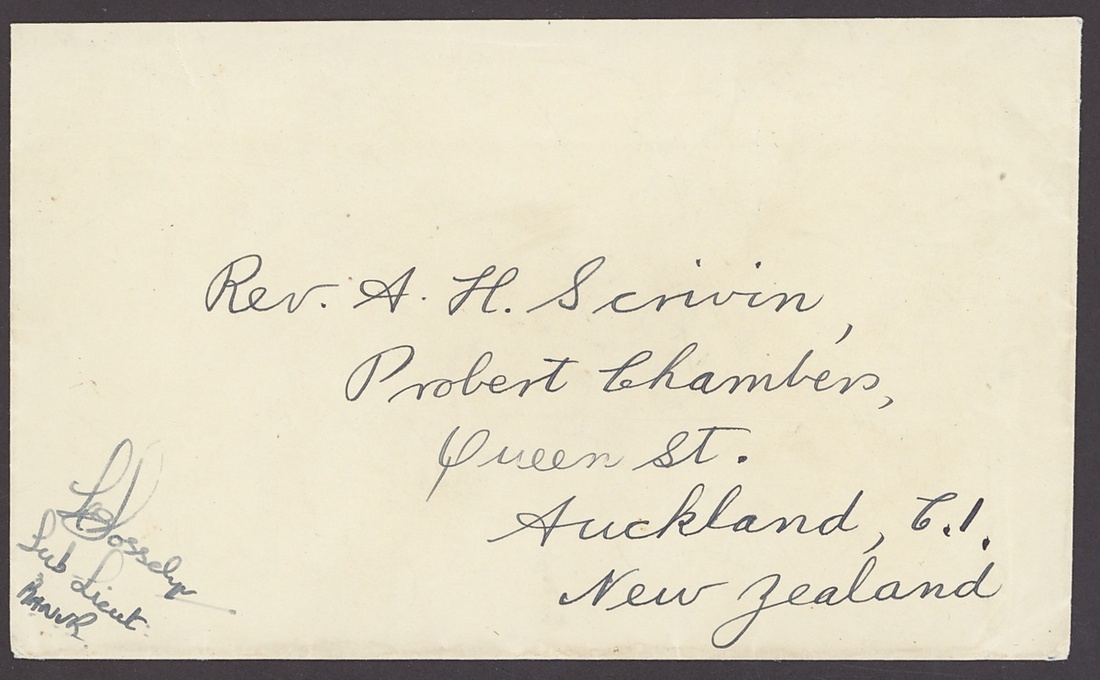 Rev. A. H. Scrivin,
Probert Chambers,
Queen St.
Auckland, C.1.
New Zealand
Sub Lieut
RANVR